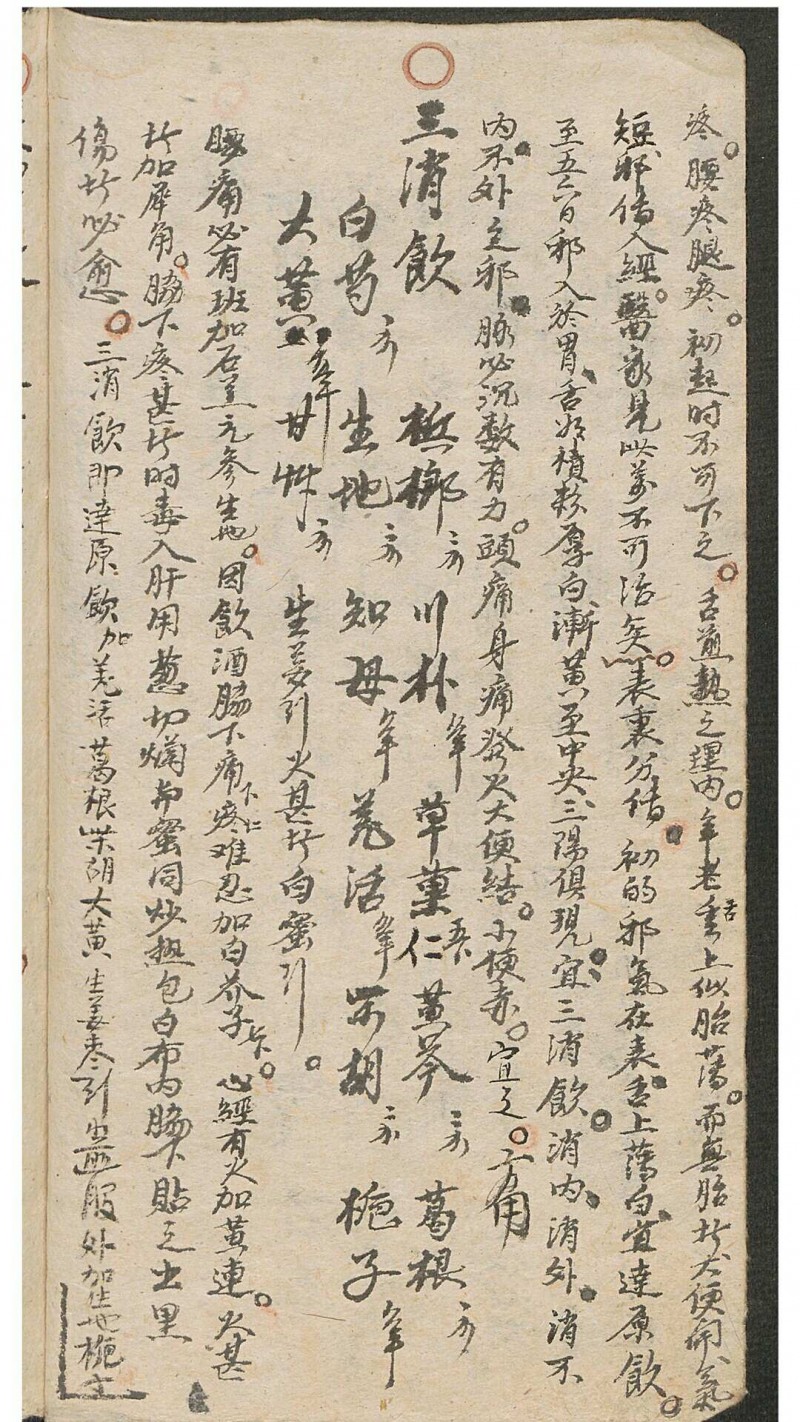 疼。腰疼腿疼。初起时不可下之。舌煎熱之埋内。年老舌上似胎薄。而無胎者大便閉氣
短。邪傳入經。醫家見此万不可治矣。表裏分傳。初的邪氣在表舌上薄白。宜達原飲。
至五六日邪入於胃舌如積粉厚白漸黃至中央三陽俱現。宜三消飲。消内消外消不
内不外之邪。脉必沉数有力。頭痛身痛發火大便結。小梗赤。宜之。方用
三消飲 檳榔 川朴 草菓仁 黃芩 葛根
白芍 生地 知母 羌活 柴胡 梔子
大黃 甘艸 生姜引火甚者白蜜引。
腰痛必有班加石羔元參生地。因飲酒脇下痛疼难忍加白芥子。心經有火加黃連。火甚
者加犀角。脇下疼甚者时毒入肝用葱切爛和蜜同炒熱包白布内脇下貼之出黑
傷者必愈。三消飲即達原飲加羌活葛根柴胡大黃生姜枣引服外加生地梔